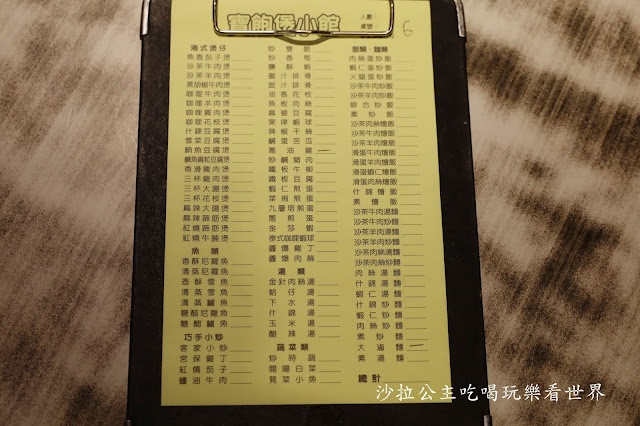 寶飽煲小館
人數：
桌號：
6
港式煲仔
魚香茄子煲
沙茶牛肉煲
沙茶羊肉煲
黑胡椒牛肉煲
咖哩牛肉煲
咖哩羊肉煲
咖哩雞肉煲
咖哩花枝煲
什錦豆腐煲
雪菜豆腐煲
鮪魚豆腐煲
鹹魚雞粒豆腐煲
香滑雞肉煲
三杯雞肉煲
三杯大腸煲
三杯花枝煲
麻辣大腸煲
麻辣蹄筋煲
紅燒蹄筋煲
紅燒牛腩煲
魚類
香酥尼羅魚
清蒸尼羅魚
香酥雪魚
清蒸雪魚
清蒸鱸魚
糖醋尼羅魚
糖醋鱸魚
巧手小炒
客家小炒
宮保雞丁
紅燒茄子
蠔油牛肉
炒雙脆
鹽酥蝦
蜜汁排骨
豉汁排骨
油香花枝
魚板肉絲
麻婆豆腐
果律蝦球
辣椒干絲
鹹蛋苦瓜
蔥油雞
炒鹹豬肉
鐵板牛柳
鐵板豆腐
蝦仁煎蛋
菜甫煎蛋
九層塔煎蛋
蔥煎蛋
金莎蝦
泰式咖哩蝦球
醬爆雞丁
醬爆肉絲
湯類
金針肉絲湯
蛤仔湯
下水湯
什錦湯
玉米湯
酸辣湯
蔬菜類
炒時蔬
開陽白菜
莧菜小魚
飯類：麵類
肉絲蛋炒飯
蝦仁蛋炒飯
火腿蛋炒飯
沙茶牛肉炒飯
沙茶羊肉炒飯
綜合炒飯
素炒飯
沙茶肉絲燴飯
沙茶牛肉燴飯
沙茶羊肉燴飯
滑蛋牛肉燴飯
滑蛋羊肉燴飯
滑蛋蝦仁燴飯
滑蛋肉絲燴飯
什錦燴飯
素燴飯
沙茶牛肉湯麵
沙茶羊肉湯麵
沙茶羊肉炒麵
沙茶牛肉炒麵
沙茶肉絲炒麵
肉絲湯麵
什錦湯麵
蝦仁湯麵
什錦炒麵
蝦仁炒麵
肉絲炒麵
素炒麵
大滷麵
素湯麵
總計
沙拉公主吃喝玩樂看世界